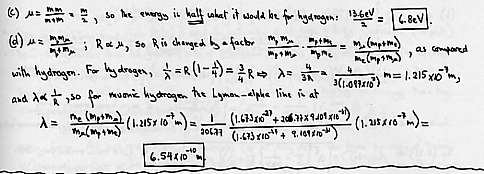 (c) μ = mm/(m+m) = m/2, so the energy is half what it would be for hydrogen: 13.6eV/2 = 6.8eV.
(d) μ = m_p m_μ/(m_p+m_μ); R ∝ μ, so R is changed by a factor m_p m_μ/(m_p+m_μ) · (m_p+m_e)/(m_p m_e) = m_μ(m_p+m_e)/(m_e(m_p+m_μ)), as compared
with hydrogen. For hydrogen, 1/λ = R(1-1/4) = 3/4 R ⇒ λ = 4/(3R) = 4/(3(1.097×10⁷)) m = 1.215×10⁻⁷m,
and λ ∝ 1/R, so for muonic hydrogen the Lyman-alpha line is at
λ = m_e(m_p+m_μ)/(m_μ(m_p+m_e)) (1.215×10⁻⁷m) = 1/206.77 (1.673×10⁻²⁷ + 206.77×9.109×10⁻³¹)/(1.673×10⁻²⁷ + 9.109×10⁻³¹) (1.215×10⁻⁷m) =
6.54×10⁻¹⁰m